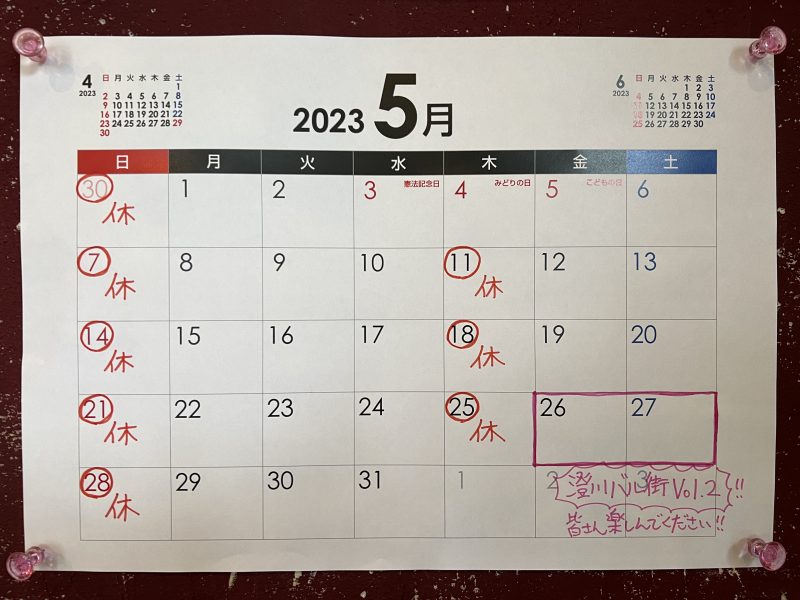 4
2023
日 月 火 水 木 金 土
1
2 3 4 5 6 7 8
9 10 11 12 13 14 15
16 17 18 19 20 21 22
23 24 25 26 27 28 29
30
2023 5月
6
2023
日 月 火 水 木 金 土
1 2 3
4 5 6 7 8 9 10
11 12 13 14 15 16 17
18 19 20 21 22 23 24
25 26 27 28 29 30
日 月 火 水 木 金 土
30 1 2 3 憲法記念日 4 みどりの日 5 こどもの日 6
休
7 8 9 10 11 12 13
休 休
14 15 16 17 18 19 20
休 休
21 22 23 24 25 26 27
休 休
28 29 30 31 1 2 3
休
澄川バル街 Vol.2!!
皆さん楽しんでください!!